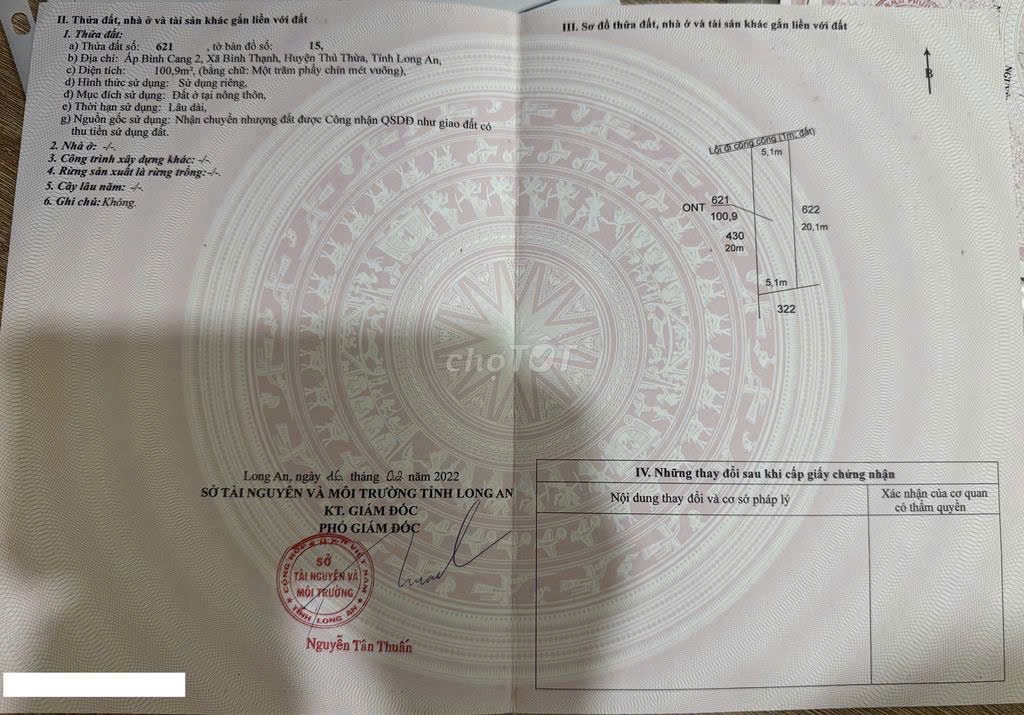 II. Thửa đất, nhà ở và tài sản khác gắn liền với đất
1. Thửa đất:
a) Thửa đất số: 621 , tờ bản đồ số: 15,
b) Địa chỉ: Ấp Bình Cang 2, Xã Bình Thạnh, Huyện Thủ Thừa, Tỉnh Long An,
c) Diện tích: 100,9m², (bằng chữ: Một trăm phẩy chín mét vuông),
d) Hình thức sử dụng: Sử dụng riêng,
đ) Mục đích sử dụng: Đất ở tại nông thôn,
e) Thời hạn sử dụng: Lâu dài,
g) Nguồn gốc sử dụng: Nhận chuyển nhượng đất được Công nhận QSDĐ như giao đất có
thu tiền sử dụng đất.
2. Nhà ở: -/-.
3. Công trình xây dựng khác: -/-.
4. Rừng sản xuất là rừng trồng: -/-.
5. Cây lâu năm: -/-.
6. Ghi chú: Không.
Long An, ngày 16 tháng 02 năm 2022
SỞ TÀI NGUYÊN VÀ MÔI TRƯỜNG TỈNH LONG AN
KT. GIÁM ĐỐC
PHÓ GIÁM ĐỐC
CỘNG HÒA X.H.C.N VIỆT NAM
SỞ
TÀI NGUYÊN VÀ
MÔI TRƯỜNG
TỈNH LONG AN
Nguyễn Tân Thuấn
III. Sơ đồ thửa đất, nhà ở và tài sản khác gắn liền với đất
B
Lối đi công cộng (1m, đất)
5,1m
ONT 621
100,9
622
20,1m
430
20m
5,1m
322
chợTỐT
IV. Những thay đổi sau khi cấp giấy chứng nhận
Nội dung thay đổi và cơ sở pháp lý
Xác nhận của cơ quan
có thẩm quyền